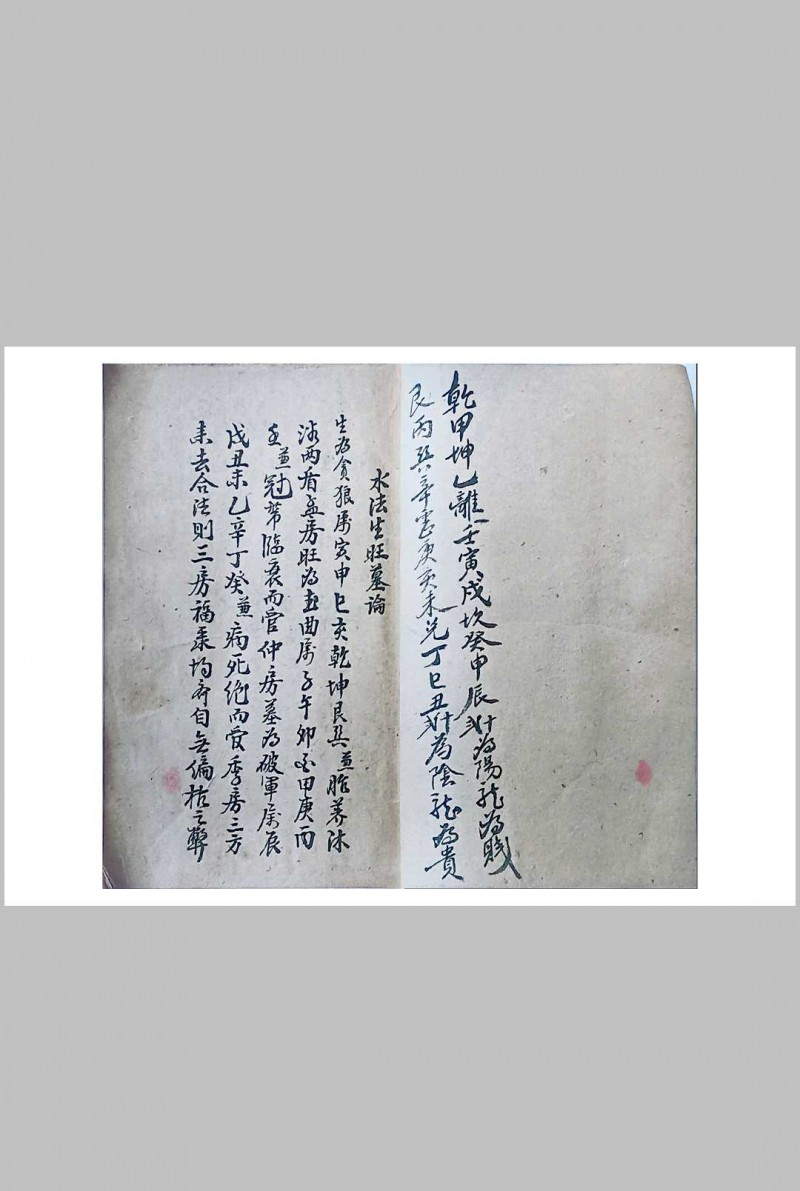 乾甲坤乙離壬寅戌坎癸申辰為陽龍為賤
艮丙巽辛震庚亥未兌丁巳丑為陰龍為貴
水法生旺墓論
生為貪狼屬寅申巳亥乾坤艮巽兼胎養沐
浴兩看孟房旺為武曲屬子午卯酉甲庚丙
壬兼冠帶臨衰而管仲房墓為破軍屬辰
戌丑未乙辛丁癸兼病死絕而管季房三方
來去合法則三房福柔均齊自無偏枯之弊